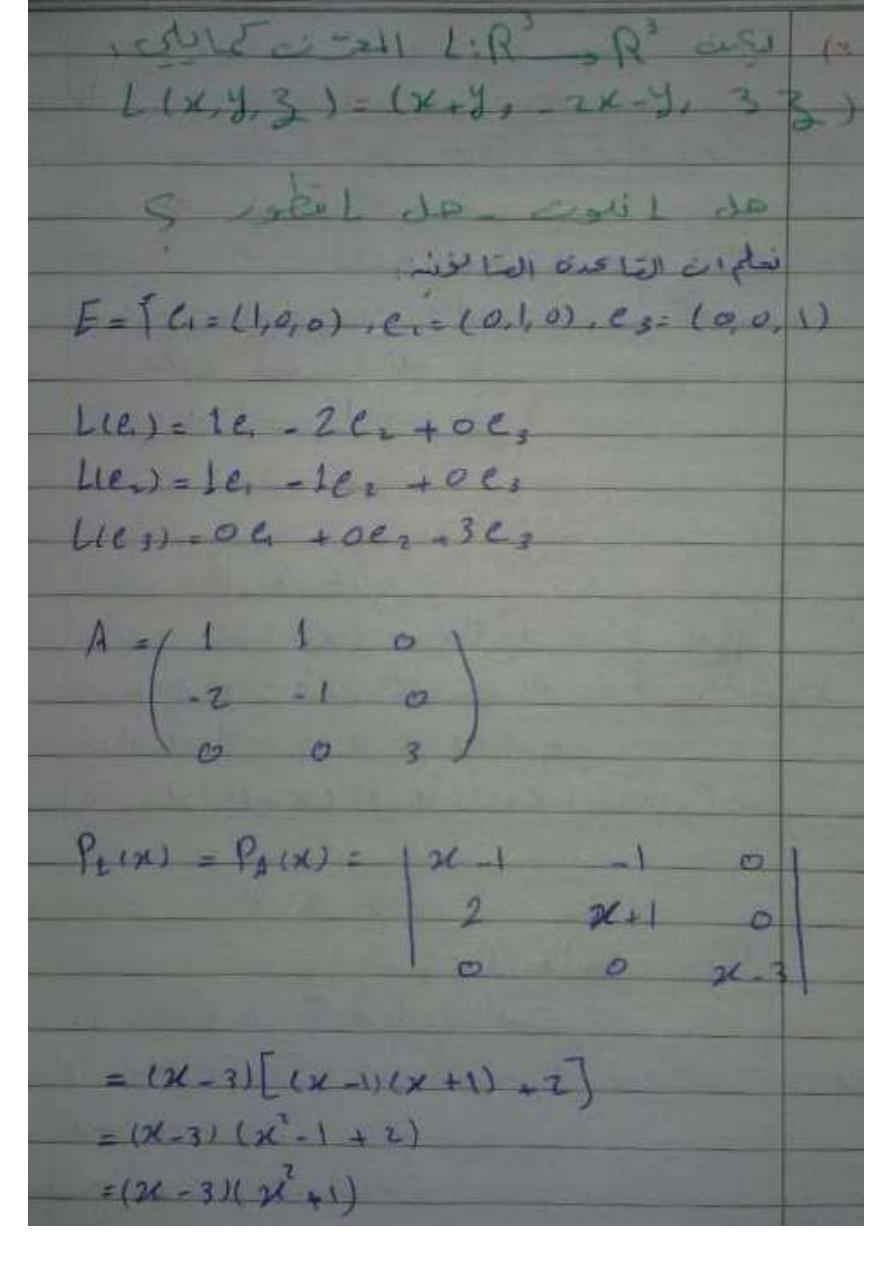 ليكن L:R³ → R³ المعرف كمايلي،
L(x,y,z) = (x+y, -2x-y, 3z)
هل L قلوب - هل L قطور ؟
نعلم ان القاعدة القانونية
E = { e₁ = (1,0,0), e₂ = (0,1,0), e₃ = (0,0,1)
L(e₁) = 1e₁ - 2e₂ + 0e₃
L(e₂) = 1e₁ - 1e₂ + 0e₃
L(e₃) = 0e₁ + 0e₂ + 3e₃
A = ( 1 1 0
-2 -1 0
0 0 3 )
P_L(x) = P_A(x) = | x-1 -1 0
2 x+1 0
0 0 x-3 |
= (x-3)[(x-1)(x+1)+2]
= (x-3)(x²-1+2)
= (x-3)(x²+1)